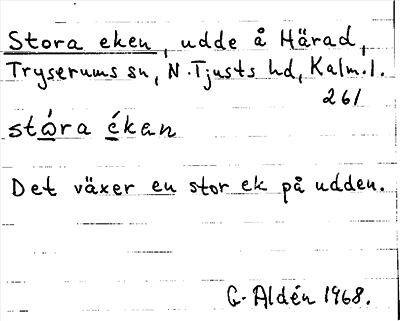 Stora eken, udde å Härad,
Tryserums sn, N. Tjusts hd, Kalm. l.
261
stóra ékan
Det växer en stor ek på udden.
G. Aldén 1968.